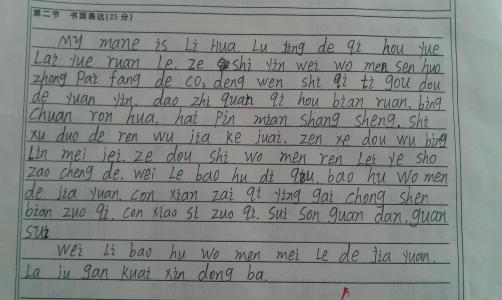 第二节 书面表达(25分)
My mane is Li Hua. Lu jing de qi hou yue
Lai yue ruan Le. ze shi yin wei wo men sen huo
zhong Pai fang de CO₂ deng wen shi qi ti gou dou
de yuan yin. dao zhi quan qi hou bian ruan. bing
chuan ron hua. hai Pin mian shang sheng. shi
xu duo de ren wu jia ke juai. zen xe dou wu bing
Lin mei jei. ze dou shi wo men ren Lei ye sho
zao cheng de. wei Le bao hu di qiu. bao hu wo men
de jia yuan. con xian zai qi ying gai chong shen
bian zuo qi. con xiao si zuo qi. sui son guan dan. guan
sui
Wei Li bao hu wo men mei Le de jia yuan.
La ju gan kuai xin dong ba.